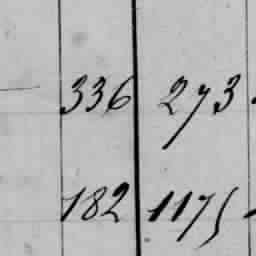 336 273
182 1175